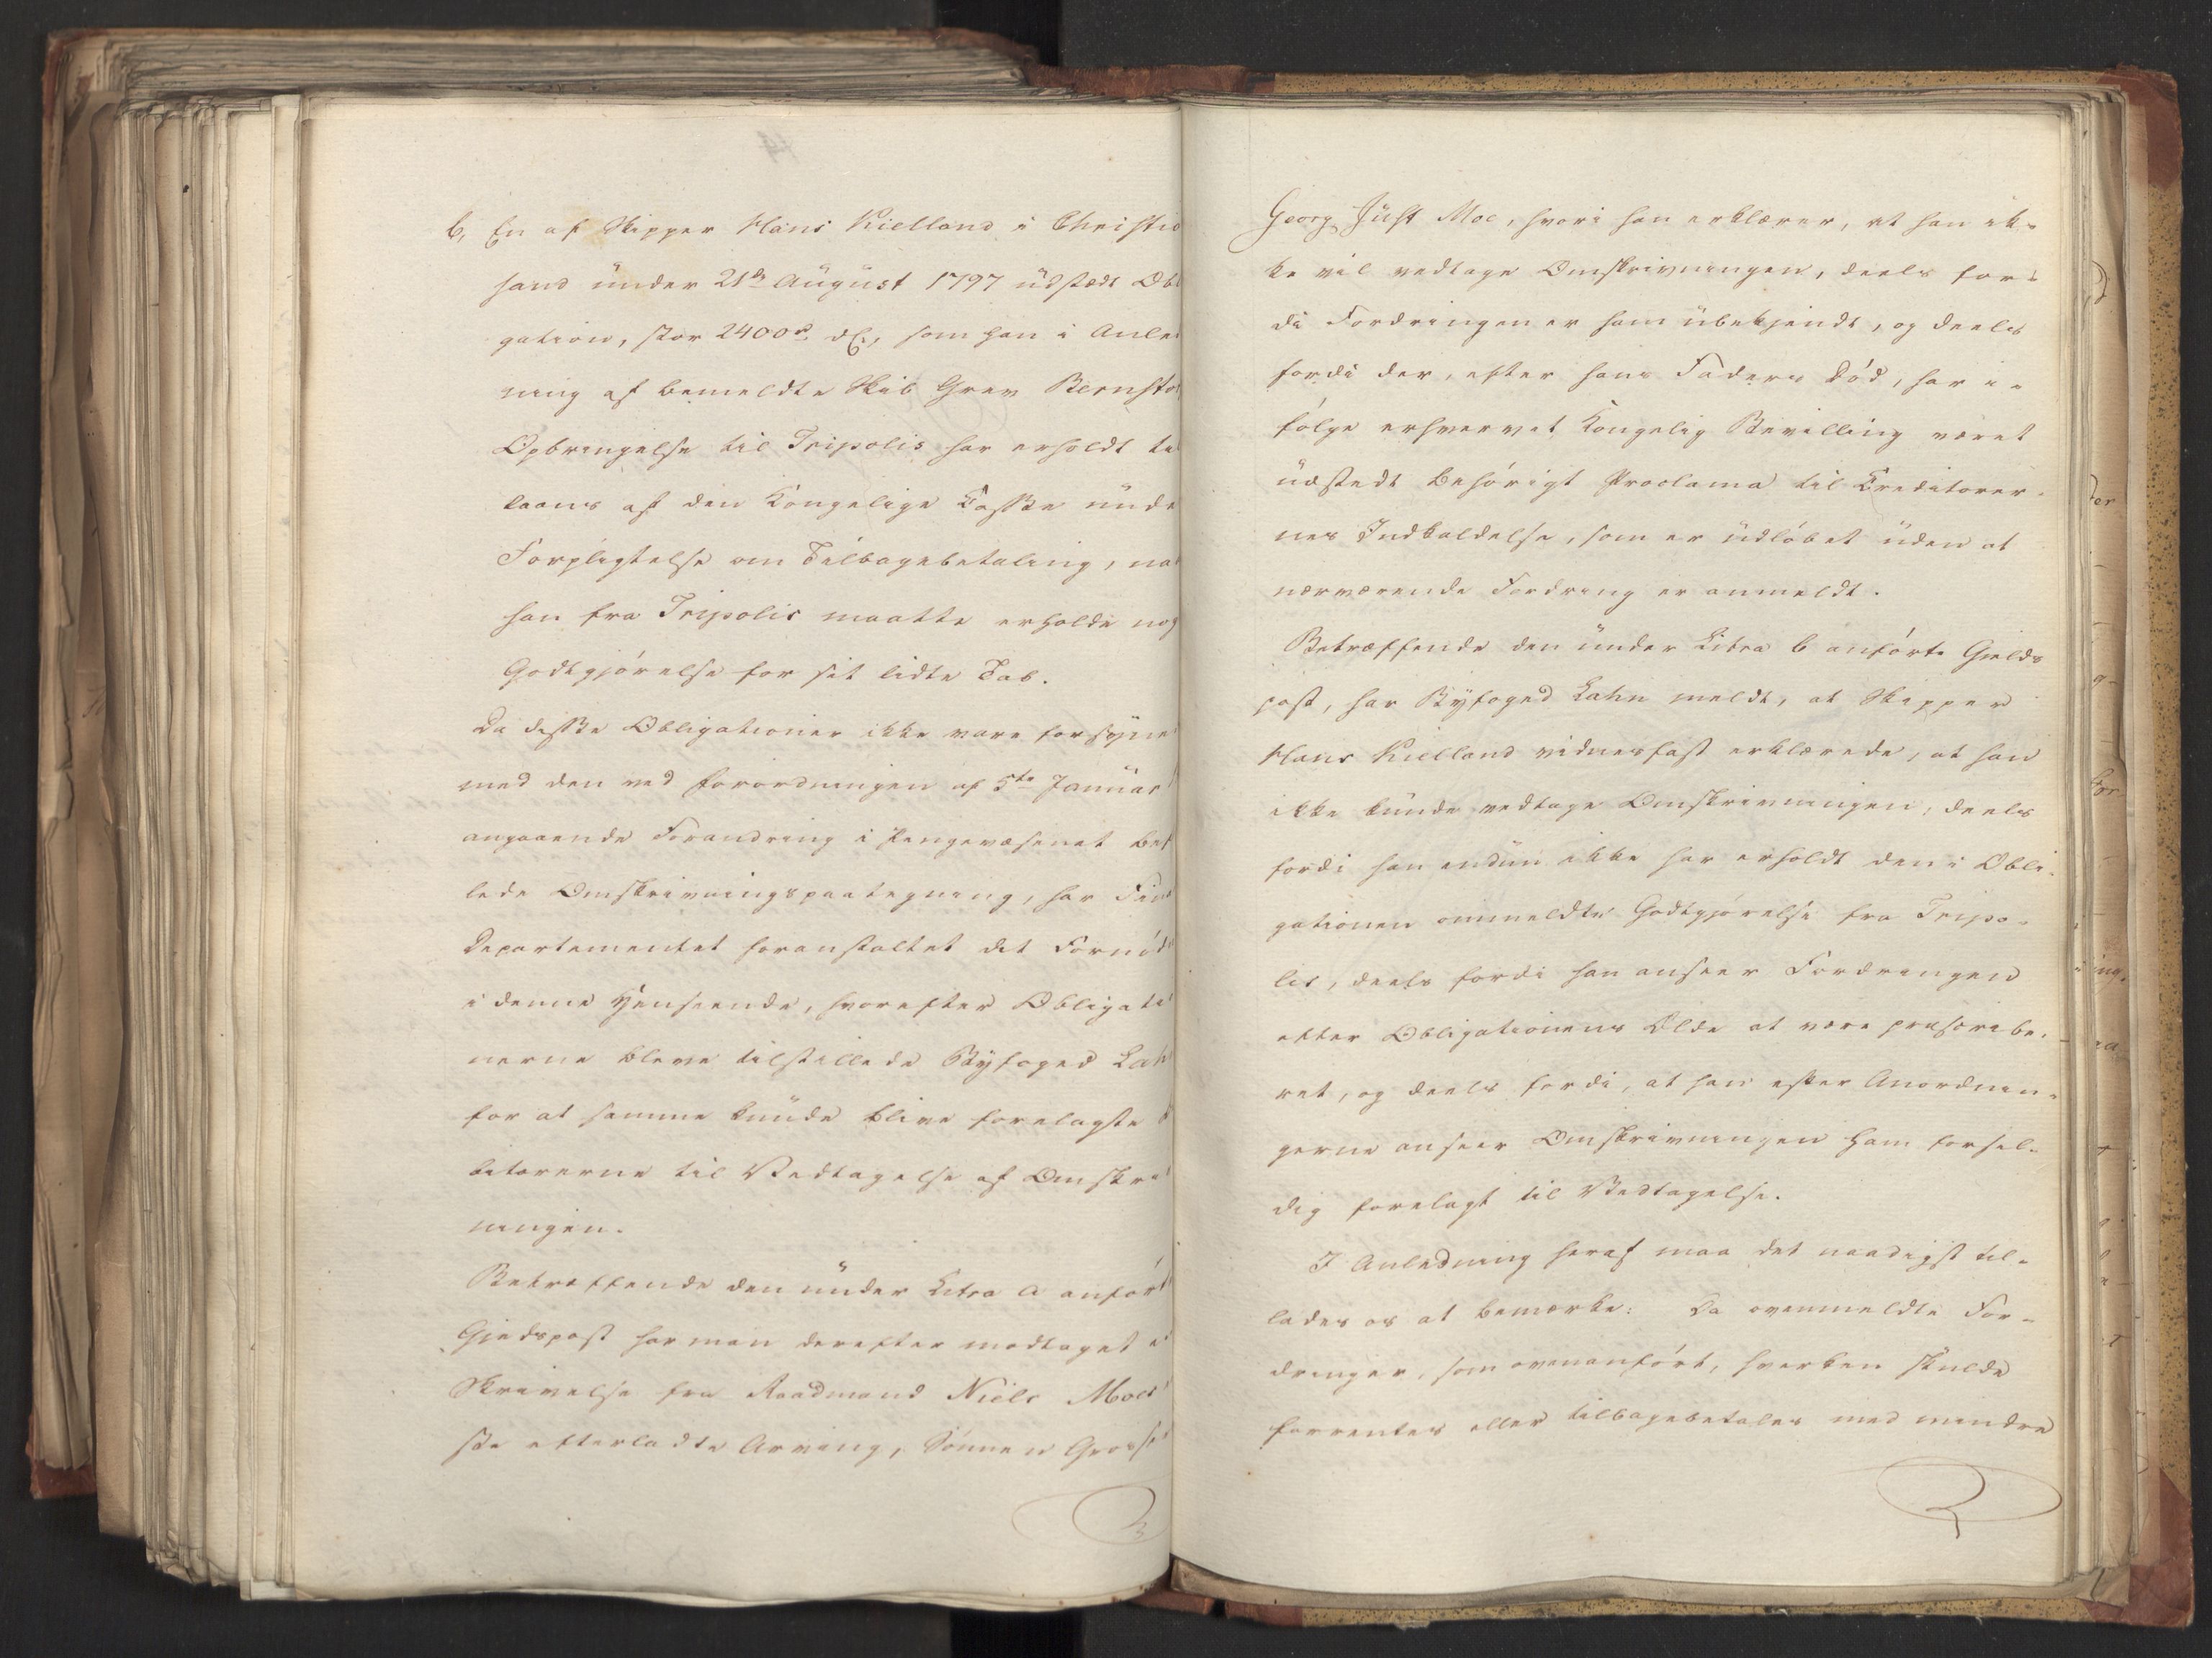 b, En af Skipper Hans Kielland i Christia
sand under 21de August 1797 udstædt Obl
gation, stor 2400 rd., som han i Anled
ning af bemeldte Skib Grev Bernsto
Opbringelse til Tripolis har erholdt til
laans af den Kongelige Casse unde
Forpligtelse om Tilbagebetaling, naa
han fra Tripolis maatte erholde nog
Godtgjörelse for sit lidte Tab.
Da disse Obligationer ikke vare forsyne
med den ved Forordningen af 5te Januar
angaaende Forandring i Pengevæsenet bef
lede Omskrivningspaategning, har Fin
Departementet foranstaltet det Fornöd
i denne Henseende, hvorefter Obligati
nerne bleve tilstillede Byfoged Lah
for at samme kunde blive forelagte D
bitorerne til Vedtagelse af Omskri
ningen.
Betræffende den under Litra a anfört
Gjeldspost har man derefter modtaget e
Skrivelse fra Raadmand Niels Moes
ste efterladte Arving, Sönnen Gross
Georg Just Moe, hvori han erklærer, at han ik-
ke vil vedtage Omskrivningen, deels for-
di Fordringen er ham ubekjendt, og deels
fordi der, efter hans Faders Död, har i-
fölge erhvervet Kongelig Bevilling været
udstedt behörigt Proclama til Creditorer-
nes Indkaldelse, som er udlöbet uden at
nærværende Fordring er anmeldt.
Betræffende den under Litra b anförte Gjelds
post, har Byfoged Lahn meldt, at Skipper
Hans Kielland vidnesfast erklærede, at han
ikke kunde vedtage Omskrivningen, deels
fordi han endnu ikke har erholdt den i Obli-
gationen ommeldte Godtgjörelse fra Tripo-
lis, deels fordi han anseer Fordringen
efter Obligationens Ælde at være præscribe-
ret, og deels fordi, at han efter Anordnin-
gerne anseer Omskrivningen ham forsil-
dig forelagt til Vedtagelse.
I Anledning heraf maa det naadigst til-
lades os at bemærke: Da ovenmeldte For-
dringer, som ovenanfört, hverken skulde
forrentes eller tilbagebetales med mindre